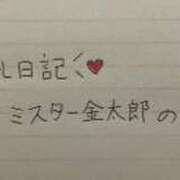 ル日記
ミスター金太郎の